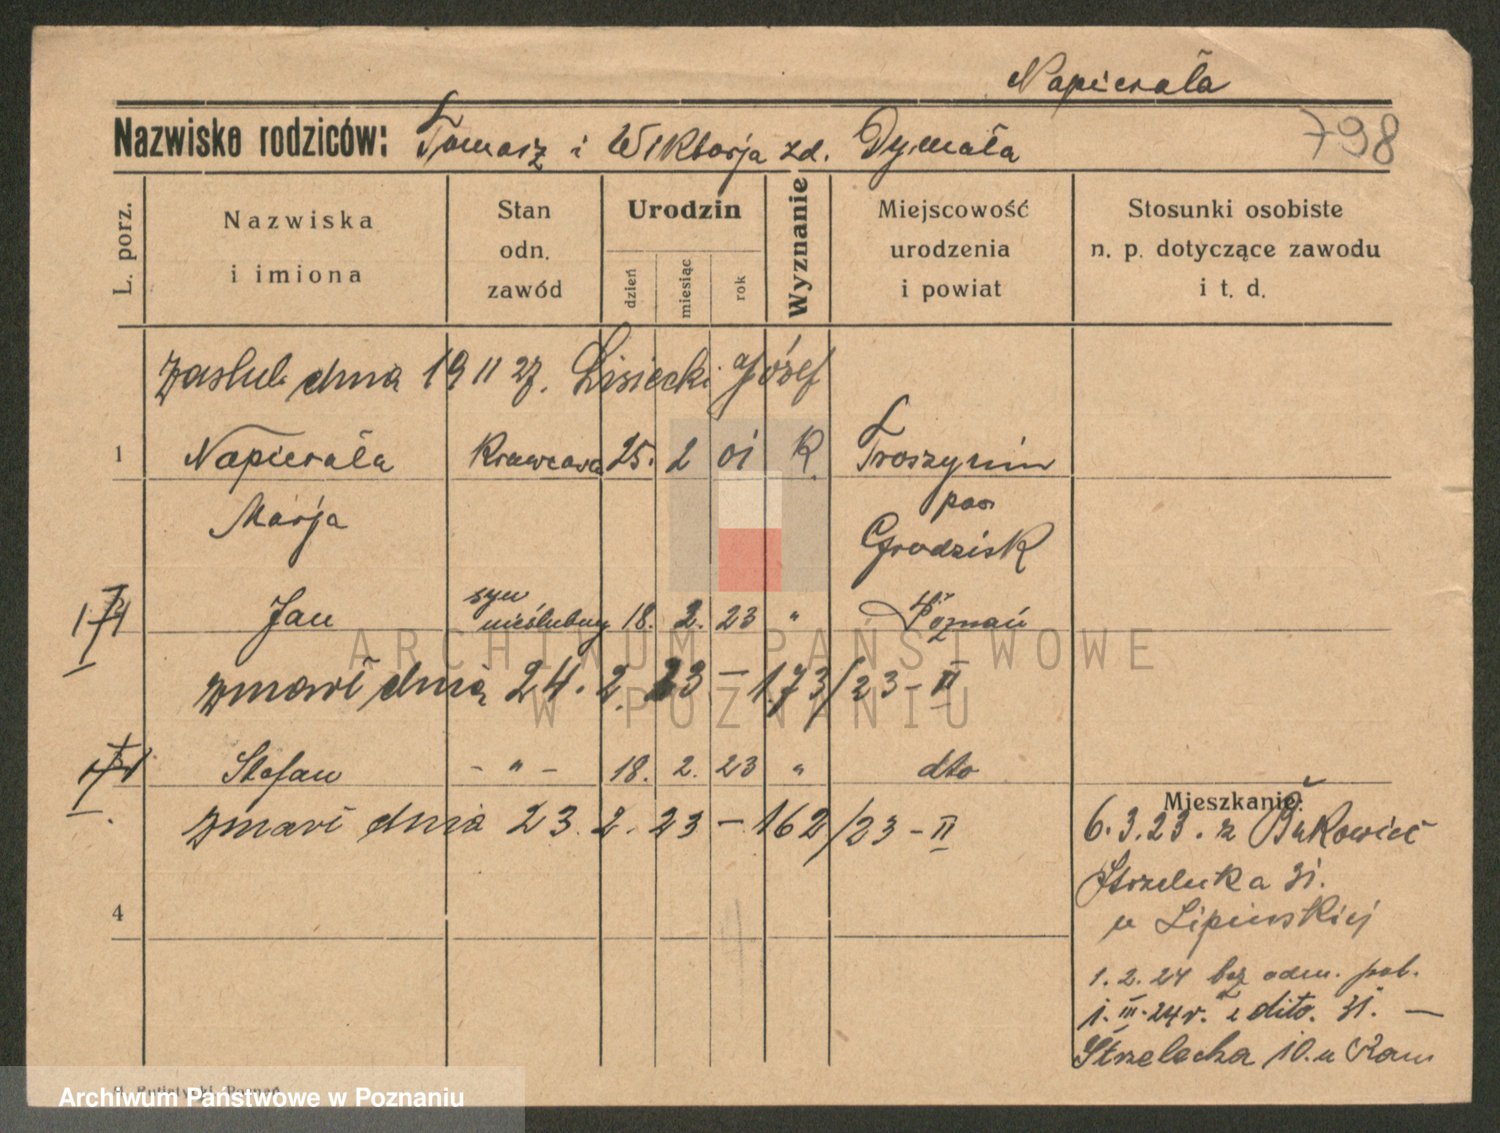 Napierała
Nazwisko rodziców: Tomasz i Wiktorja zd. Dymała
798
L. porz.
Nazwiska
i imiona
Stan
odn.
zawód
Urodzin
dzień
miesiąc
rok
Wyznanie
Miejscowość
urodzenia
i powiat
Stosunki osobiste
n. p. dotyczące zawodu
i t. d.
zaslub. dnia 19 11 27. Lisiecki Józef
1 Napierała Krawcowa 25. 2 01 K.
Marja
pow
Grodzisk
Jan syn nieślubny 18. 2. 23 " Poznań
zmarł dnia 24. 2. 23 - 173/23 - II
Stefan - " - 18. 2. 23 " dto
zmarł dnia 23. 2. 23 - 162/23 - II
Mieszkanie:
6. 3. 23. z Bukowiec
31.
u Lipinskiej
4
1. 2. 24 bez odm. pob.
1. III. 24 r. z dito. 31. —
Strzelecka 10. u
ARCHIWUM PAŃSTWOWE
W POZNANIU
Archiwum Państwowe w Poznaniu